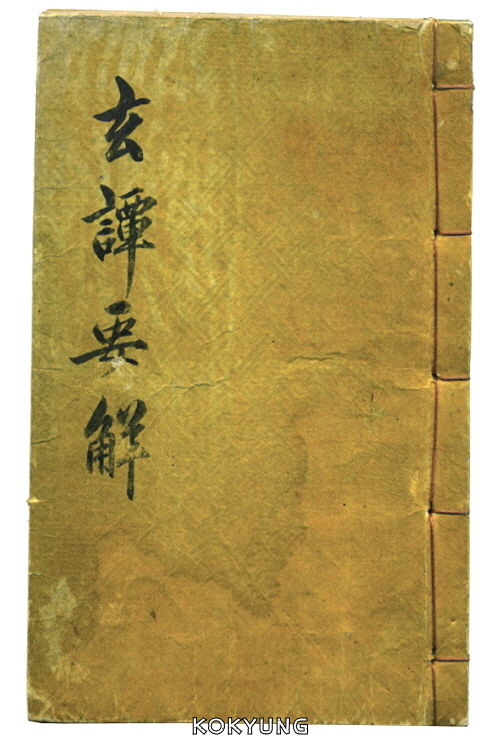 玄譚要解
KOKYUNG